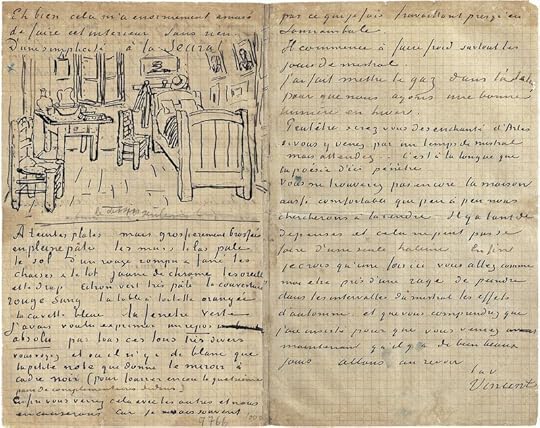 Eh bien cela m'a enormement amusé
de faire cet interieur sans rien
D'une simplicité à la Seurat
à teintes plates mais grossierement brossées
en pleine pâte les murs lilas pale
le sol d'un rouge rompu & fané les
chaises & le lit jaune de chrome les oreillers
et le drap citron vert très pâle la couverture
rouge sang la table à toilette orangée
la cuvette bleue la fenetre verte
J'avais voulu exprimer un repos
absolu par tous ces tons très divers
vous voyez et où il n'y a de blanc que
la petite note que donne le miroir à
cadre noir (pour fourrer encore la quatrième
paire de complementaires dedans)
Enfin vous verrez cela avec les autres et nous
en causerons car je ne sais souvent
9766
pas ce que je fais travaillant presqu'en
somnambule
Il commence à faire froid surtout les
jours de mistral
J'ai fait mettre le gaz dans
pour que nous ayons une bonne
lumière en hiver
Peutêtre serez vous desenchanté d'Arles
si vous y venez par un temps de mistral
mais attendez .. C'est à la longue que
la poésie d'ici pénètre
Vous ne trouverez pas encore la maison
aussi comfortable que peu à peu nous
chercherons à la rendre Il y a tant de
depenses et cela ne peut pas se
faire d'une seule haleine Enfin
je crois qu'une fois ici vous allez comme
moi etre pris d'une rage de peindre
dans les intervalles du mistral les effets
d'automne et que vous comprendrez que
j'aie insisté pour que vous veniez
maintenant qu'il y a de bien beaux
jours allons au revoir
t. à v.
Vincent